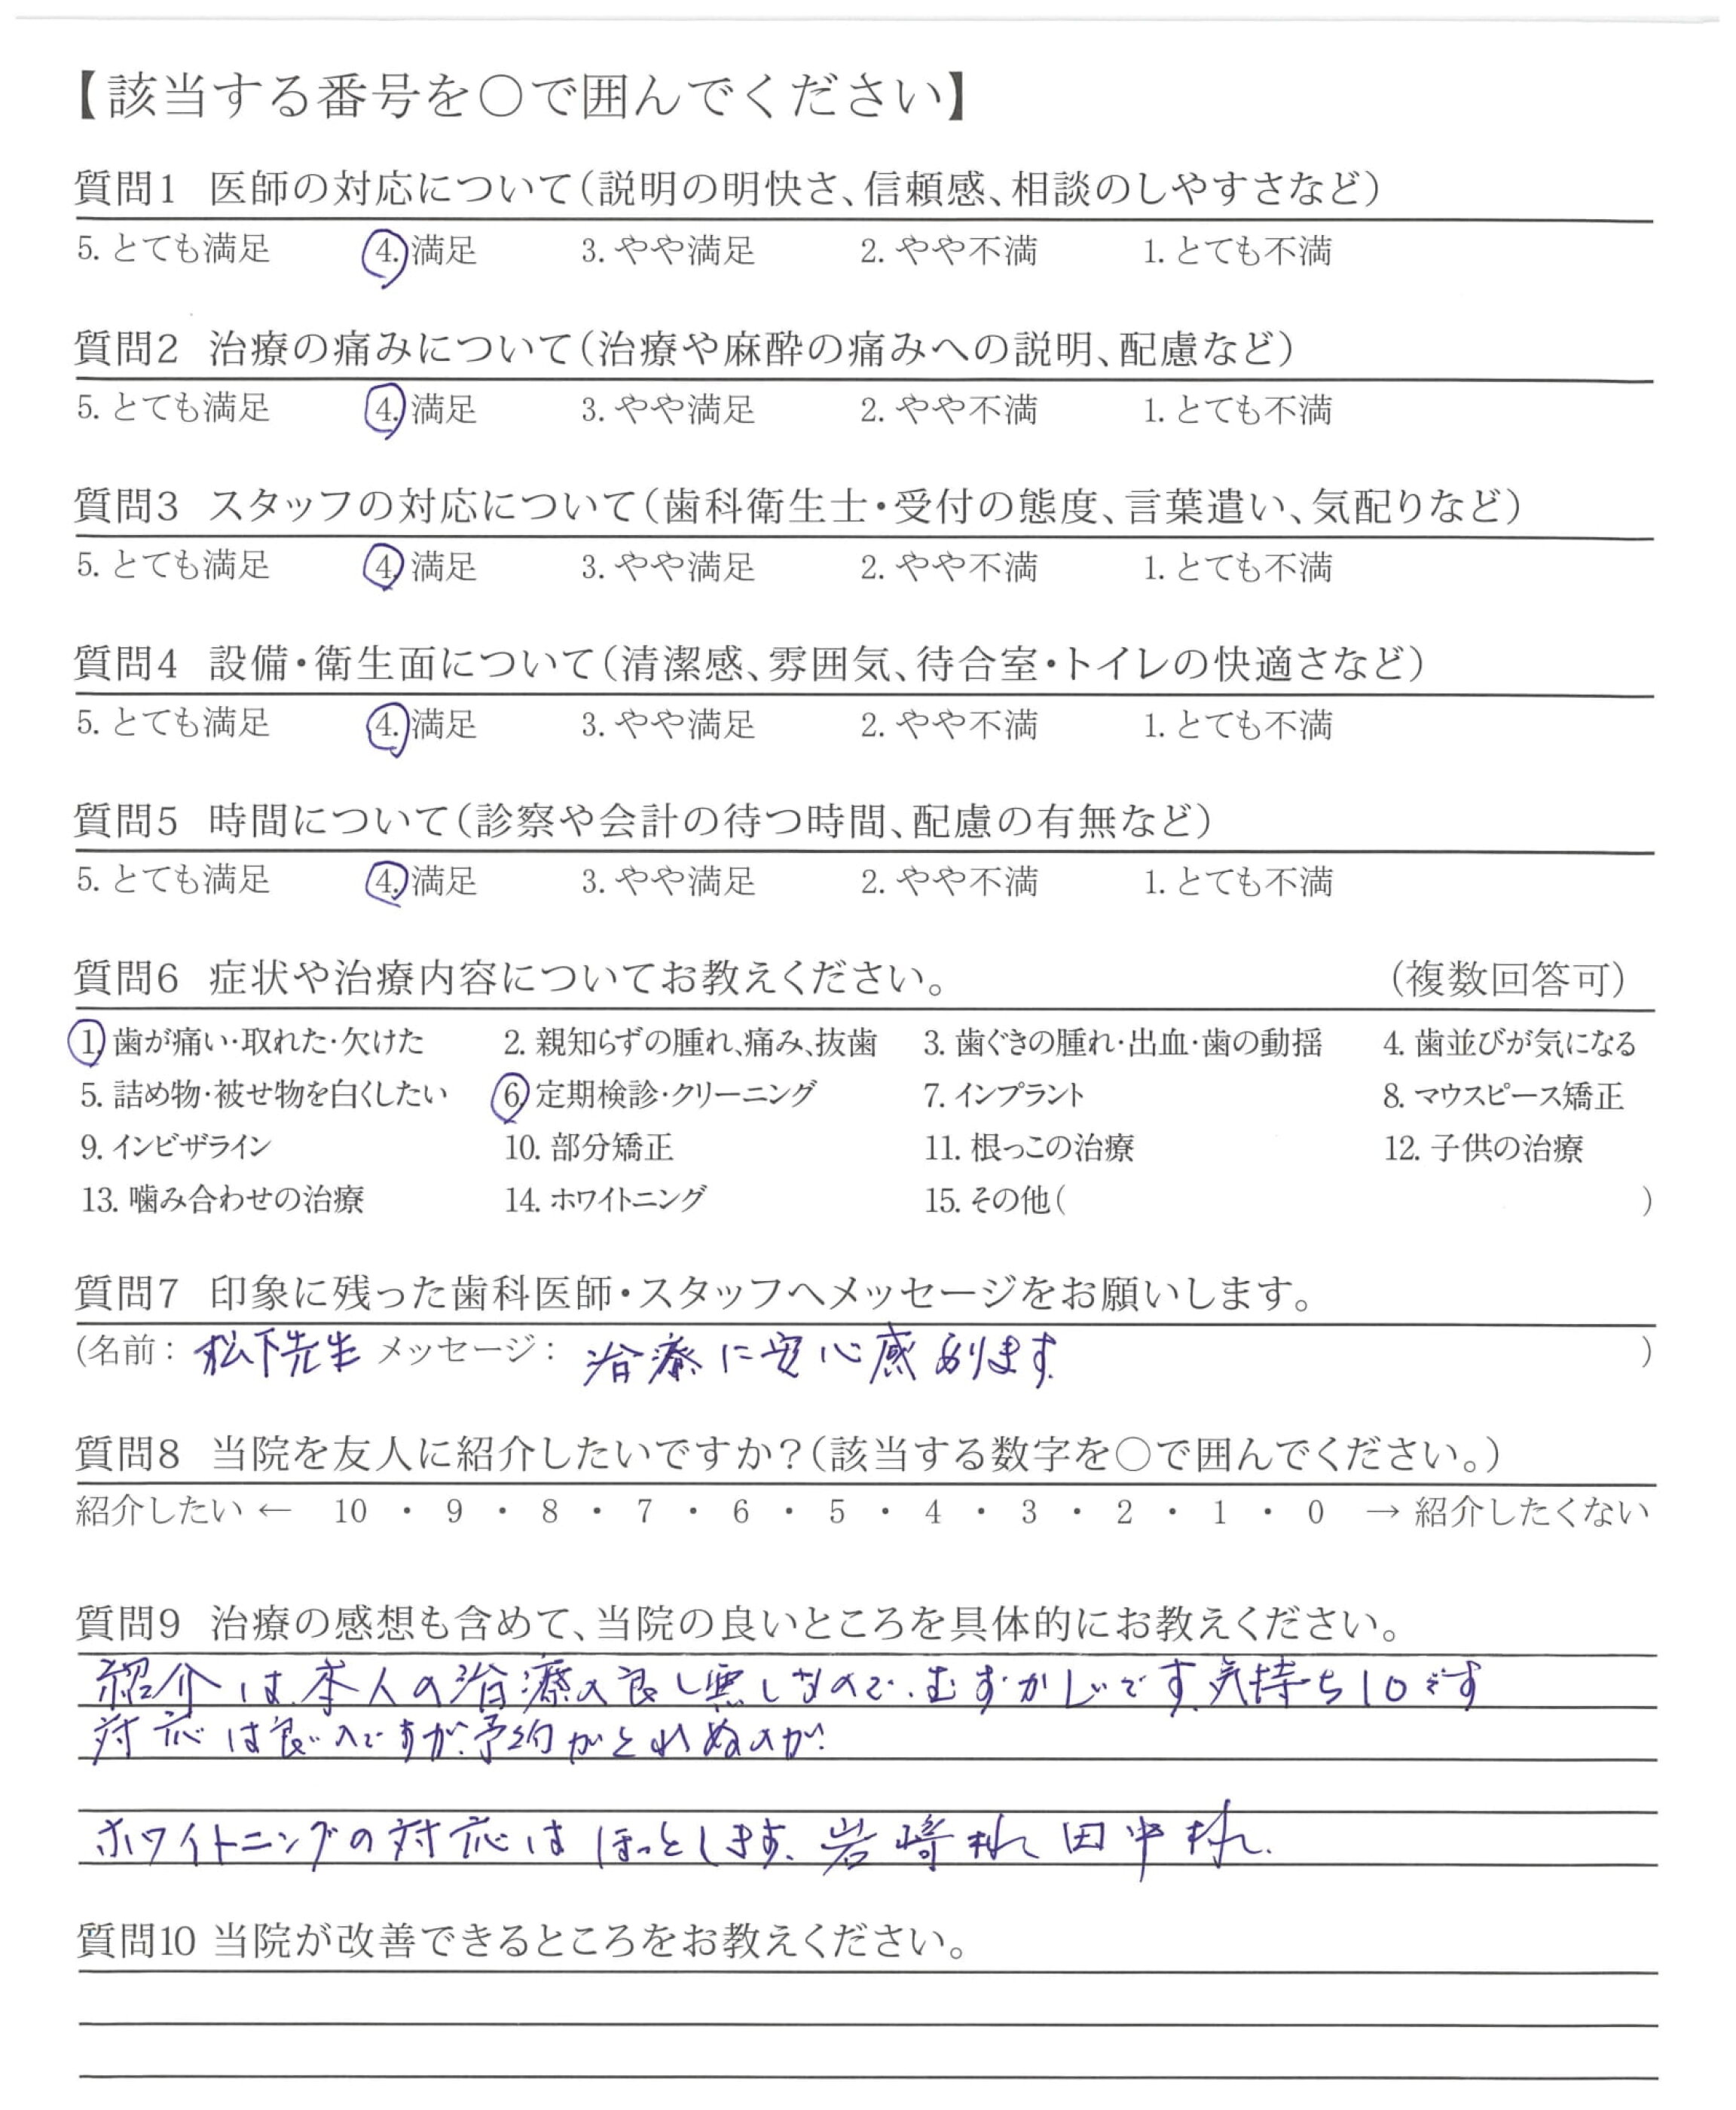 【該当する番号を〇で囲んでください】
質問1 医師の対応について(説明の明快さ、信頼感、相談のしやすさなど)
5. とても満足 4. 満足 3. やや満足 2. やや不満 1. とても不満
質問2 治療の痛みについて(治療や麻酔の痛みへの説明、配慮など)
5. とても満足 4. 満足 3. やや満足 2. やや不満 1. とても不満
質問3 スタッフの対応について(歯科衛生士・受付の態度、言葉遣い、気配りなど)
5. とても満足 4. 満足 3. やや満足 2. やや不満 1. とても不満
質問4 設備・衛生面について(清潔感、雰囲気、待合室・トイレの快適さなど)
5. とても満足 4. 満足 3. やや満足 2. やや不満 1. とても不満
質問5 時間について(診察や会計の待つ時間、配慮の有無など)
5. とても満足 4. 満足 3. やや満足 2. やや不満 1. とても不満
質問6 症状や治療内容についてお教えください。 (複数回答可)
1. 歯が痛い・取れた・欠けた 2. 親知らずの腫れ、痛み、抜歯 3. 歯ぐきの腫れ・出血・歯の動揺 4. 歯並びが気になる
5. 詰め物・被せ物を白くしたい 6. 定期検診・クリーニング 7. インプラント 8. マウスピース矯正
9. インビザライン 10. 部分矯正 11. 根っこの治療 12. 子供の治療
13. 噛み合わせの治療 14. ホワイトニング 15. その他( )
質問7 印象に残った歯科医師・スタッフへメッセージをお願いします。
(名前: 松下先生 メッセージ: 治療に安心感あります。 )
質問8 当院を友人に紹介したいですか?(該当する数字を〇で囲んでください。)
紹介したい ← 10 ・ 9 ・ 8 ・ 7 ・ 6 ・ 5 ・ 4 ・ 3 ・ 2 ・ 1 ・ 0 → 紹介したくない
質問9 治療の感想も含めて、当院の良いところを具体的にお教えください。
紹介は、本人の治療の良し悪しなので、むずかしいです。気持ち10です
対応は良いのですが、予約がとれぬのが、
ホワイトニングの対応はほっとします、岩崎様 田中様.
質問10 当院が改善できるところをお教えください。